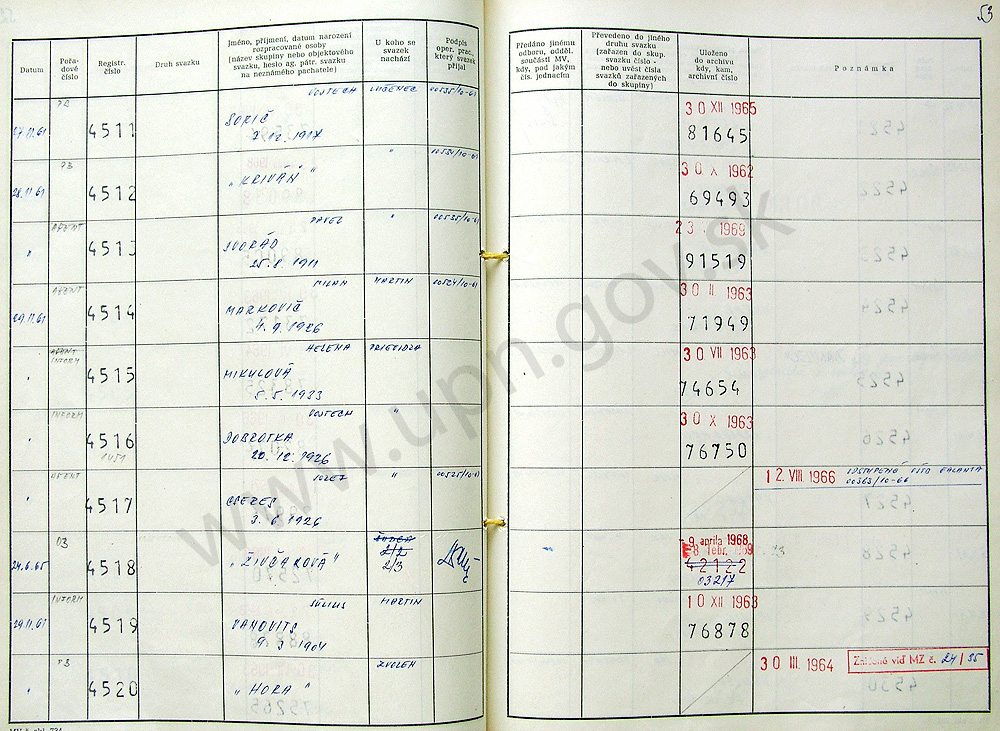 53
Datum
Pořa-
dové
číslo
Registr.
číslo
Druh svazku
Jméno, příjmení, datum narození
rozpracované osoby
(název skupiny nebo objektového
svazku, heslo ag. pátr. svazku
na neznámého pachatele)
U koho se
svazek
nachází
Podpis
oper. prac.,
který svazek
přijal
Předáno jinému
odboru, odděl.
součásti MV,
kdy, pod jakým
čís. jednacím
Převedeno do jiného
druhu svazku
(zařazen do skup.
svazku číslo -
nebo uvést čísla
svazků zařazených
do skupiny)
Uloženo
do archivu
kdy, kam,
archivní číslo
Poznámka
27.11.61 4511 VOJTECH LUČENEC 00535/10-61 30 XII 1965
SORIČ
2.12.1917 81645
PB
28.11.61 4512 „KRIVÁŇ" " 00534/10-61 30 X 1962
69493
AGENT
" 4513 PAVEL " 00535/10-61 23 1969
DVORÁD
25.8.1911 91519
AGENT
29.11.61 4514 MILAN MARTIN 00524/10-61 30 II. 1963
MARKOVIČ
4.9.1926 71949
INFORM
" 4515 HELENA PRIEVIDZA 30 VII 1963
MIKULOVÁ
5.5.1933 74654
INFORM
" 4516 VOJTECH " 30 X 1963
DOBROTKA
20.12.1926 76750
AGENT
" 4517 JOZEF " 00525/10-61 12. VIII 1966 ODSTÚPENÉ GALANTA
00363/10-66
3.6.1926
24.6.65 4518 „ŽIVČÁKOVÁ" 2/2 9. apríla 1968
2/3 8 febr.
42122
03217
INFORM
29.11.61 4519 JÚLIUS MARTIN 10 XII 1963
VANOVITS
9.3.1904 76878
PB
" 4520 „HORA" ZVOLEN 30 III. 1964 Zničené viď MZ č. 24/95
www.upn.gov.sk